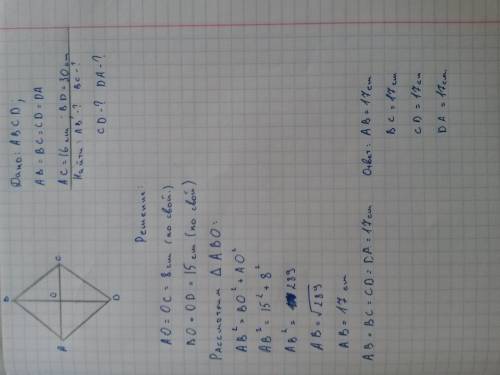 Дано: ABCD,
AB = BC = CD = DA
AC = 16 см; BD = 30 см
Найти: AB - ? BC - ?
CD - ? DA - ?
B
A
O
C
D
Решение:
AO = OC = 8 см (по свой.)
BO = OD = 15 см (по свой)
Рассмотрим △ ABO:
AB² = BO² + AO²
AB² = 15² + 8²
AB² = 289
AB = √289
AB = 17 см
AB = BC = CD = DA = 17 см
Ответ: AB = 17 см
BC = 17 см
CD = 17 см
DA = 17 см